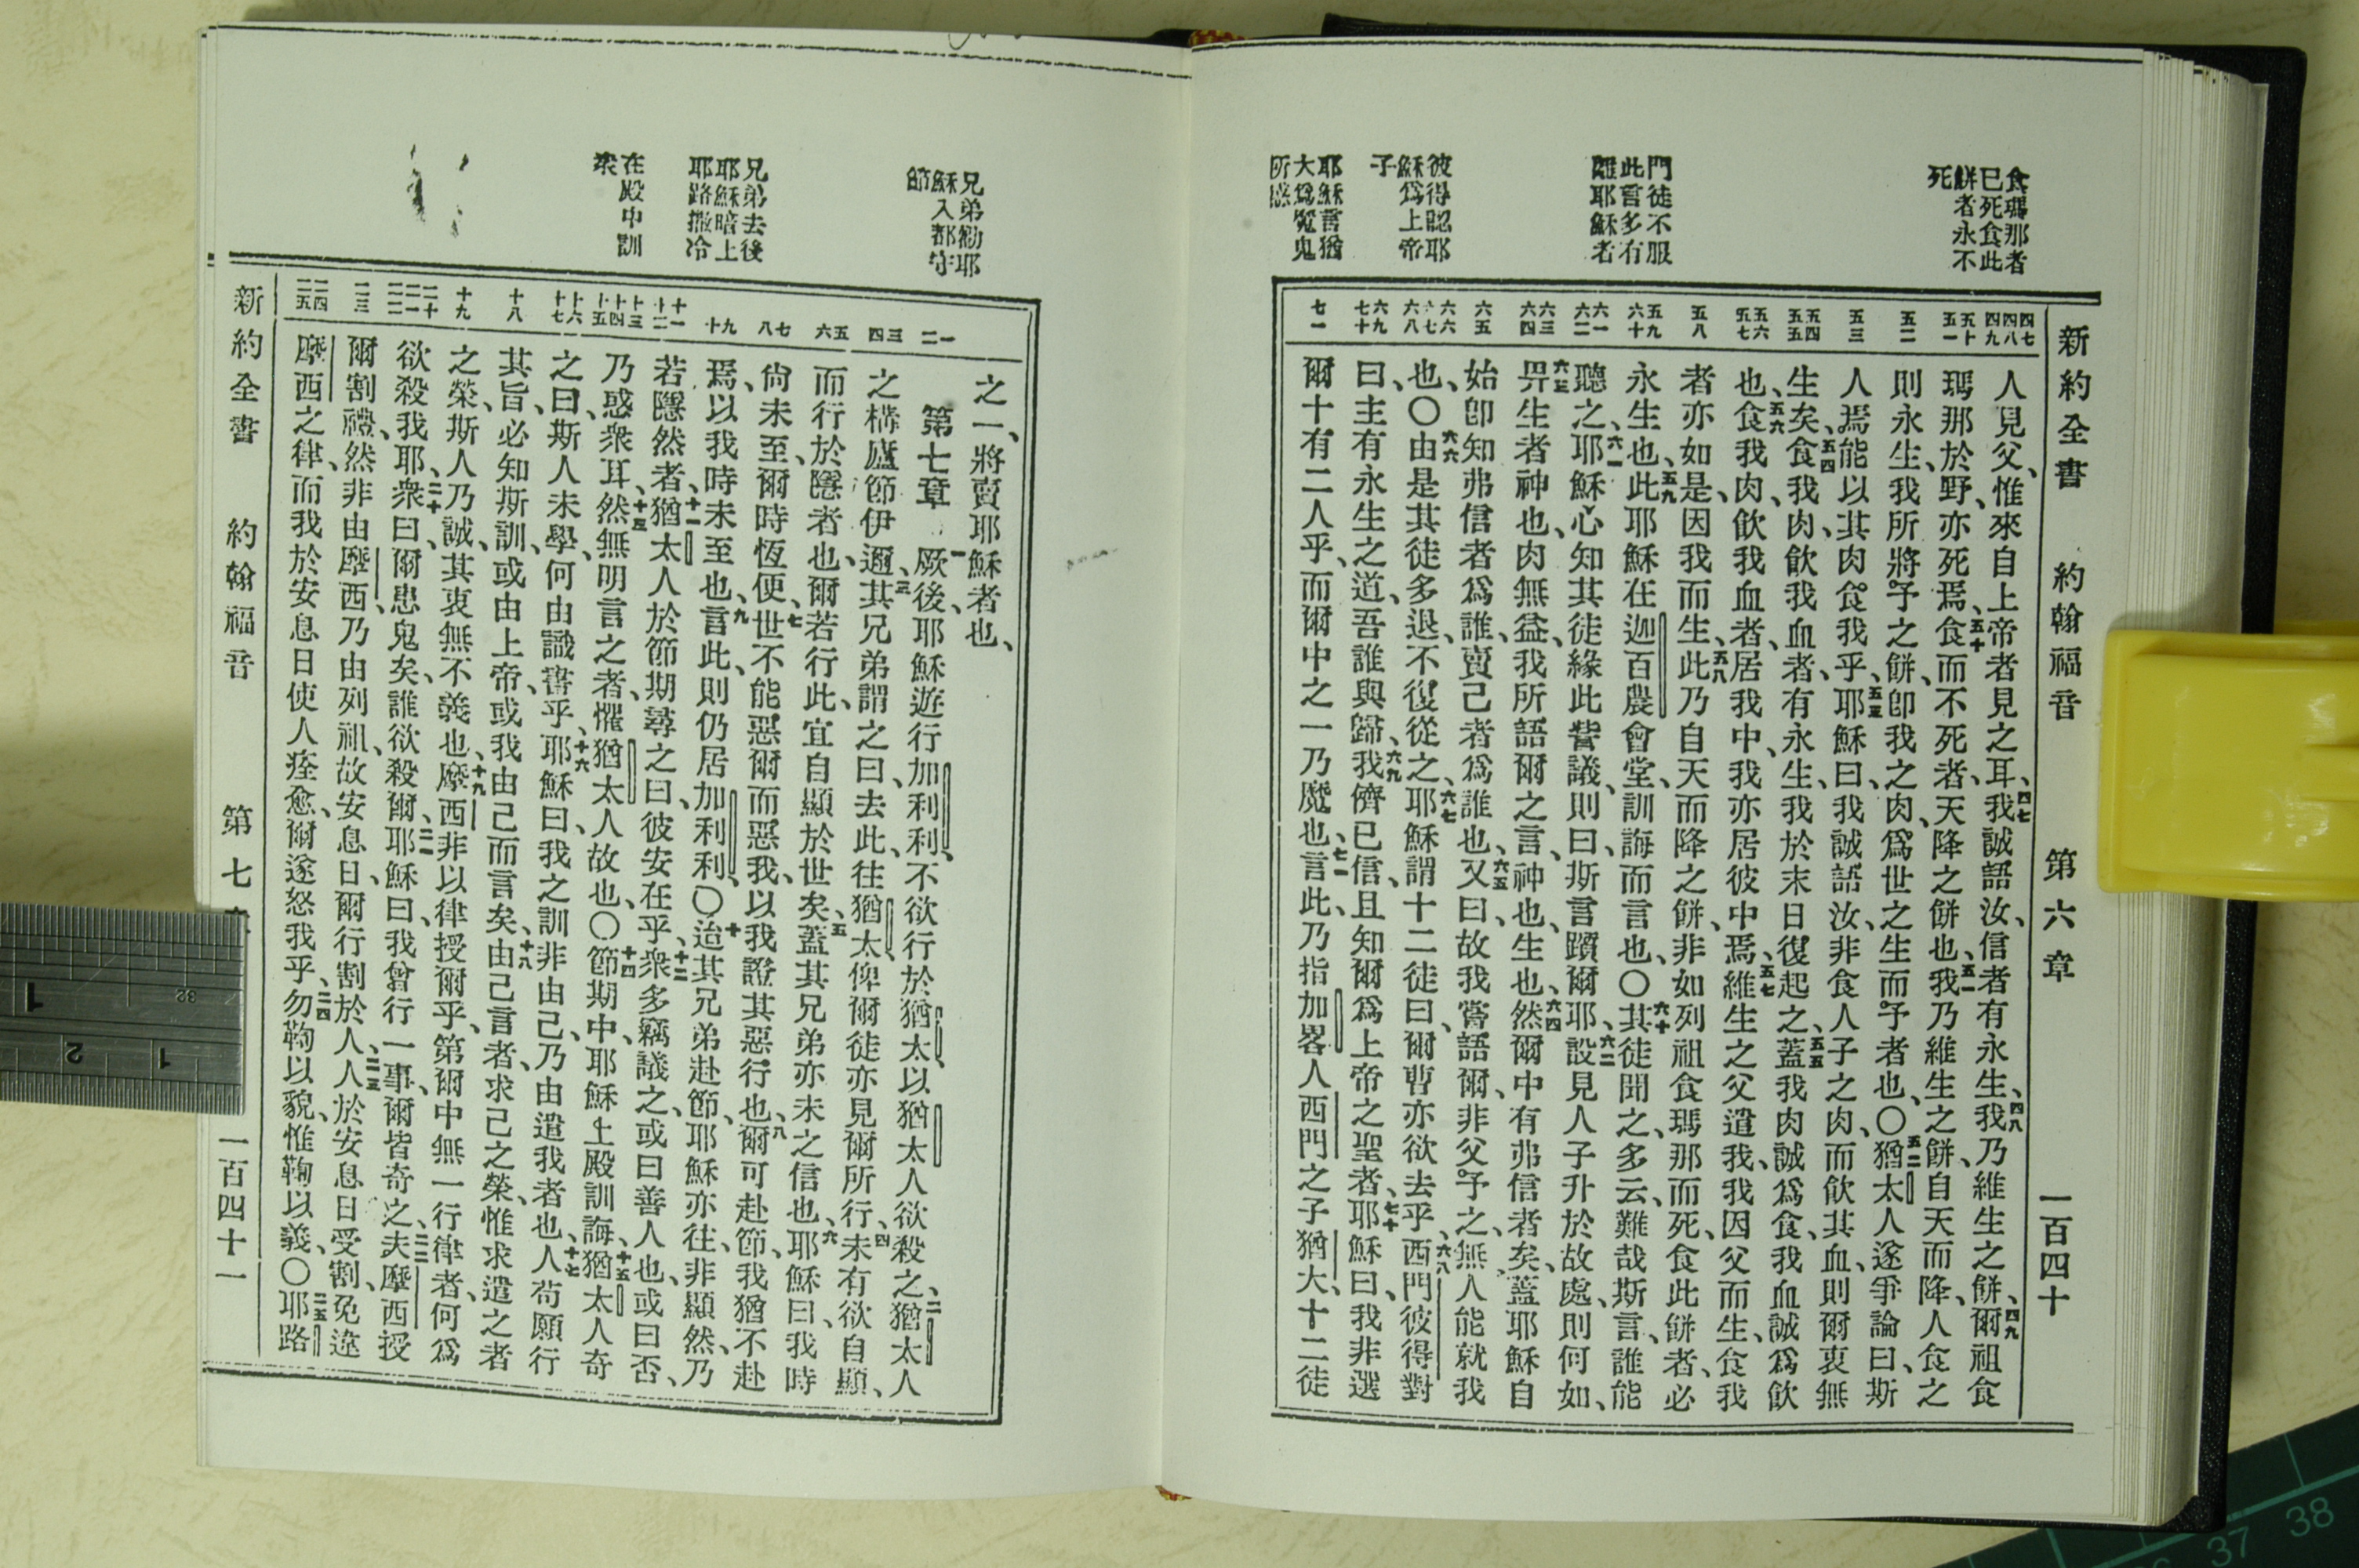 新約全書 約翰福音 第六章 一百四十
食瑪那者
已死食此
餅者永不
死
門徒不服
此言多有
離耶穌者
彼得認耶
穌爲上帝
子
耶穌言猶
大爲魔鬼
所惑
四七
四八
四九
五十
五一
五二
五三
五四
五五
五六
五七
五八
五九
六十
六一
六二
六三
六四
六五
六六
六七
六八
六九
七十
七一
人見父、惟來自上帝者見之耳、四七我誠語汝、信者有永生、四八我乃維生之餅、四九爾祖食
瑪那於野、亦死焉、五十食而不死者、天降之餅也、五一我乃維生之餅、自天而降、人食之
則永生、我所將予之餅、卽我之肉、爲世之生而予者也、〇五二猶太人遂爭論曰、斯
人焉能以其肉食我乎、五三耶穌曰、我誠語汝、非食人子之肉、而飮其血、則爾衷無
生矣、五四食我肉、飮我血者、有永生、我於末日復起之、五五蓋我肉誠爲食、我血誠爲飮
也、五六食我肉、飮我血者、居我中、我亦居彼中焉、五七維生之父遣我、我因父而生、食我
者亦如是、因我而生、五八此乃自天而降之餅、非如列祖食瑪那而死、食此餅者、必
永生也、五九此耶穌在迦百農會堂、訓誨而言也、〇六十其徒聞之、多云、難哉斯言、誰能
聽之、六一耶穌心知其徒緣此訾議、則曰、斯言躓爾耶、六二設見人子升於故處、則何如、
六三畀生者神也、肉無益、我所語爾之言、神也、生也、六四然爾中有弗信者矣、蓋耶穌自
始卽知弗信者爲誰、賣己者爲誰也、六五又曰、故我嘗語爾、非父予之、無人能就我
也、〇六六由是其徒多退、不復從之、六七耶穌謂十二徒曰、爾曹亦欲去乎、六八西門彼得對
曰、主有永生之道、吾誰與歸、六九我儕已信、且知爾爲上帝之聖者、七十耶穌曰、我非選
爾十有二人乎、而爾中之一乃魔也、七一言此、乃指加畧人西門之子猶大、十二徒
兄弟勸耶
穌入都守
節
兄弟去後
耶穌暗上
耶路撒冷
在殿中訓
衆
一
二
三
四
五
六
七
八
九
十
十一
十二
十三
十四
十五
十六
十七
十八
十九
二十
二一
二二
二三
二四
二五
之一、將賣耶穌者也、
第七章 一厥後、耶穌遊行加利利、不欲行於猶太、以猶太人欲殺之、二猶太人
之構廬節伊邇、三其兄弟謂之曰、去此、往猶太、俾爾徒亦見爾所行、四未有欲自顯、
而行於隱者也、爾若行此、宜自顯於世矣、五蓋其兄弟亦未之信也、六耶穌曰、我時
尙未至、爾時恆便、七世不能惡爾而惡我、以我證其惡行也、八爾可赴節、我猶不赴
焉、以我時未至也、九言此、則仍居加利利、〇十迨其兄弟赴節、耶穌亦往、非顯然、乃
若隱然者、十一猶太人於節期尋之曰、彼安在乎、十二衆多竊議之、或曰善人也、或曰否、
乃惑衆耳、十三然無明言之者、懼猶太人故也、〇十四節期中、耶穌上殿訓誨、十五猶太人奇
之曰、斯人未學、何由識書乎、十六耶穌曰、我之訓非由己、乃由遣我者也、十七人苟願行
其旨、必知斯訓、或由上帝、或我由己而言矣、十八由己言者、求己之榮、惟求遣之者
之榮、斯人乃誠、其衷無不義也、十九摩西非以律授爾乎、第爾中無一行律者、何爲
欲殺我耶、二十衆曰、爾患鬼矣、誰欲殺爾、二一耶穌曰、我曾行一事、爾皆奇之、二二夫摩西授
爾割禮、然非由摩西、乃由列祖、故安息日、爾行割於人、二三人於安息日受割、免違
摩西之律、而我於安息日使人痊愈、爾遂怒我乎、二四勿鞫以貌、惟鞫以義、〇二五耶路
新約全書 約翰福音 第七 一百四十一
1
2
1
32
37
38